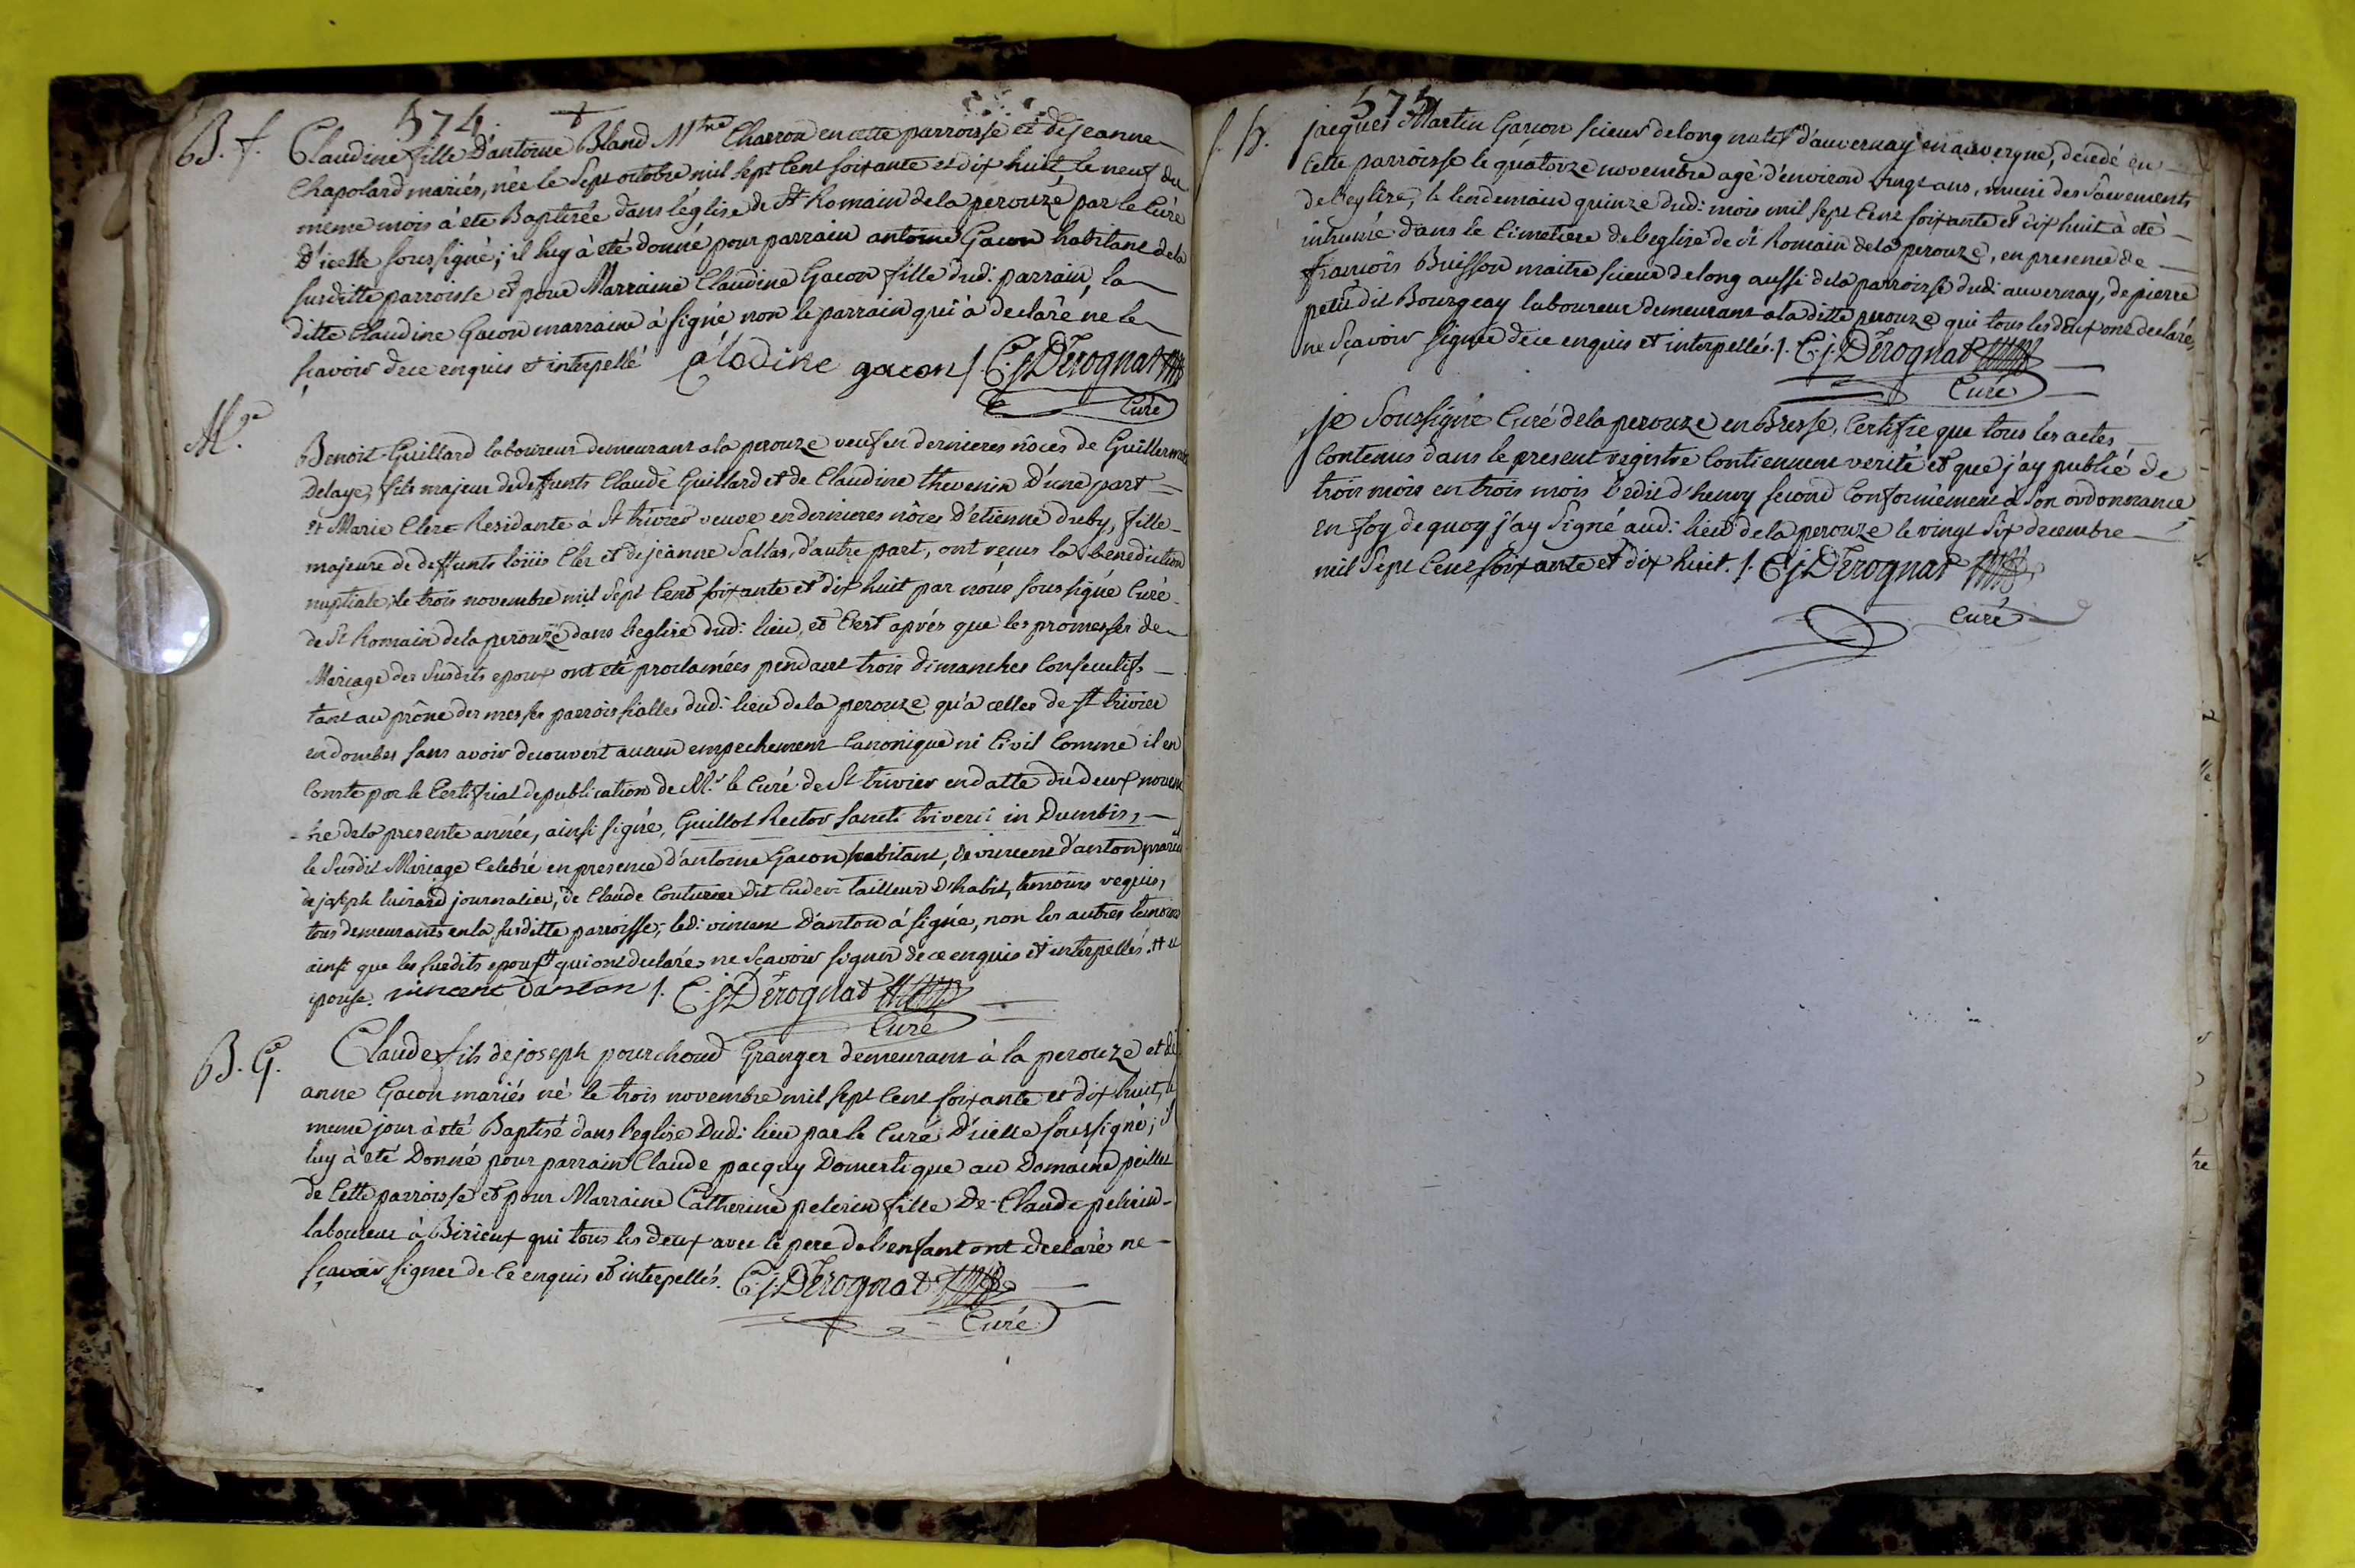 574. +
B. f. Claudine fille D'antoine Bland Mtre Charron en cette parroisse et de jeanne
Chapolard mariés, née le Sept octobre mil sept Cent soixante et dix huit le neuf du
meme mois à eté Baptizée dans léglise de St Romain de la perouze par le Curé
D'icelle soussigné; il luy à eté donné pour parrain antoine Gacon habitant de la
susditte parroisse et pour Marraine Claudine Gacon fille dud: parrain, la
ditte Claudine Gacon marraine à signé non le parrain qui à declaré ne le
sçavoir de ce enquis et interpellé clodine gacon /. C:j:Derognat
Curé
M.ge Benoit Guillard laboureur demeurant a la perouze veuf en dernieres nôces de Guillermette
Delaye, fils majeur de deffunts Claude Guillard et de Claudine thevenin D'une part
et Marie Clerc Residante à St trivier veuve en dernieres nôces D'etienne druby, fille
majeure de deffunts loüis Cler et de jeanne Sallas, d'autre part, ont reçus la benediction
nuptiale, le trois novembre mil Sept Cent soixante et dix huit par nous soussigné Curé
de St Romain de la perouze dans l'eglise dud: lieu, et C'est aprés que les promesses de
Mariage des Susdits epoux ont eté proclamées pendant trois dimanches Consecutifs
tant au prône des messes parroissialles dud: lieu de la perouze qu'à celles de St trivier
en dombes sans avoir decouvert aucun empechement Canonique ni Civil Comme il en
Conste par le Certificat de publication de Mr le Curé de St trivier en datte du deux novem
bre de la presente année, ainsi signé, Guillot Rector Sancti triverii in Dumbis,
le Susdit Mariage Celebré en presence d'antoine Gacon habitant, de vincent d'anton
de joseph luirard journalier, de Claude Couturier dit tailleur d'habit, temoins requis,
tous demeurants en la susditte parroisse; led: vincent D'anton à signé, non les autres temoins
ainsi que les susdits epoux qui ont declarés ne sçavoir signer de ce enquis et interpellés.
epouse. vincent danton /. C:j:Derognat
Curé
B. G. Claude fils de joseph pourchoud Granger demeurant à la perouze et de
anne Gacon mariés né le trois novembre mil sept Cent soixante et dix huit, le
meme jour à eté Baptisé dans l'eglise Dud: lieu par le Curé D'icelle soussigné; il
luy à eté Donné pour parrain Claude pacquy Domestique au Domaine peillet
de Cette parroisse et pour Marraine Catherine pelerin fille De Claude pelerin
laboureur à Birieux qui tous les deux avec le pere de l'enfant ont declarés ne
sçavoir signer de Ce enquis et interpellés. C:j:Derognat
Curé
575
S. jacques Martin Garçon scieur de long natif d'auvernay en auvergne, decedé en
Cette parroisse le quatorze novembre agé d'environ vingt ans, muni des Sacrements
de l'eglise, le lendemain quinze dud: mois mil sept Cent soixante et dix huit à eté
inhumé dans le Cimetiere de l'eglise de St Romain de la perouze, en presence de
francois Buisson maitre scieur de long aussi de la parroisse dud: auvernay, de pierre
petit dit Bourgeay laboureur demeurant a la ditte perouze qui tous les deux ont declarés
ne Sçavoir signer de ce enquis et interpellés./. C:j:Derognat
Curé
je Soussigné Curé de la perouze en Bresse, Certifie que tous les actes
Contenus dans le present registre Contiennent verité et que j'ay publié de
trois mois en trois mois l'edit d'henry second Conformément à Son ordonnance
en foy de quoy j'ay Signé aud: lieu de la perouze le vingt Six decembre
mil Sept Cent soixante et dix huit. /. C:j:Derognat
Curé